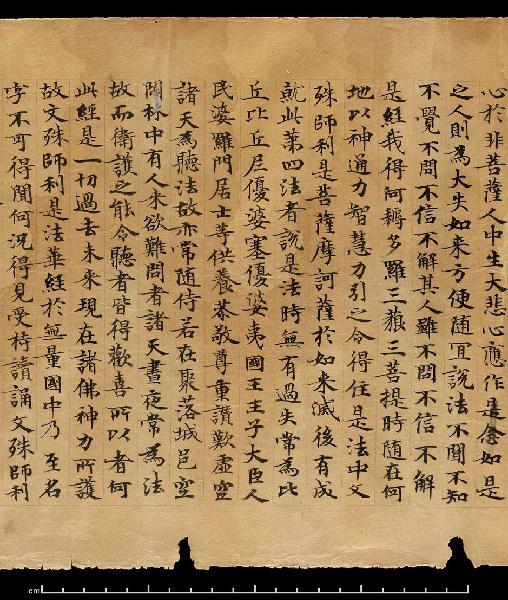 心於非菩薩人中生大悲心應作是念如是
之人則為大失如來方便隨冝說法不聞不知
不覺不問不信不解其人雖不問不信不解
是經我得阿耨多羅三藐三菩提時隨在何
地以神通力智慧力引之令得住是法中文
殊師利是菩薩摩訶薩於如来滅後有成
就此第四法者說是法時無有過失常為比
丘比丘尼優婆塞優婆夷國王王子大臣人
民婆羅門居士等供養恭敬尊重讚歎虛空
諸天為聽法故亦常隨侍若在聚落城邑空
閑林中有人来欲難問者諸天晝夜常為法
故而衛護之能令聽者皆得歡喜所以者何
此經是一切過去未来現在諸佛神力所護
故文殊師利是法華經於無量國中乃至名
字不可得聞何況得見受持讀誦文殊師利
cm